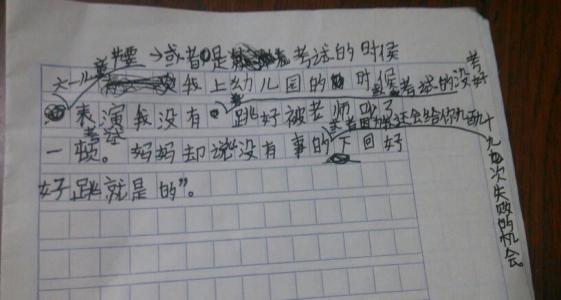 →或者是 考试的时候
六一儿童 我上幼儿园的时候
考试的没考好
表演我没有跳好被老师吵了
一顿。妈妈却说没有事的下回好
还会给你九百九十九次失败的机会。
好跳就是的”。